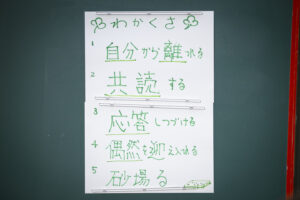 わかくさ
1 自分から離れる
2 共読する
3 応答しつづける
4 偶然を迎え入れる
5 砂場る